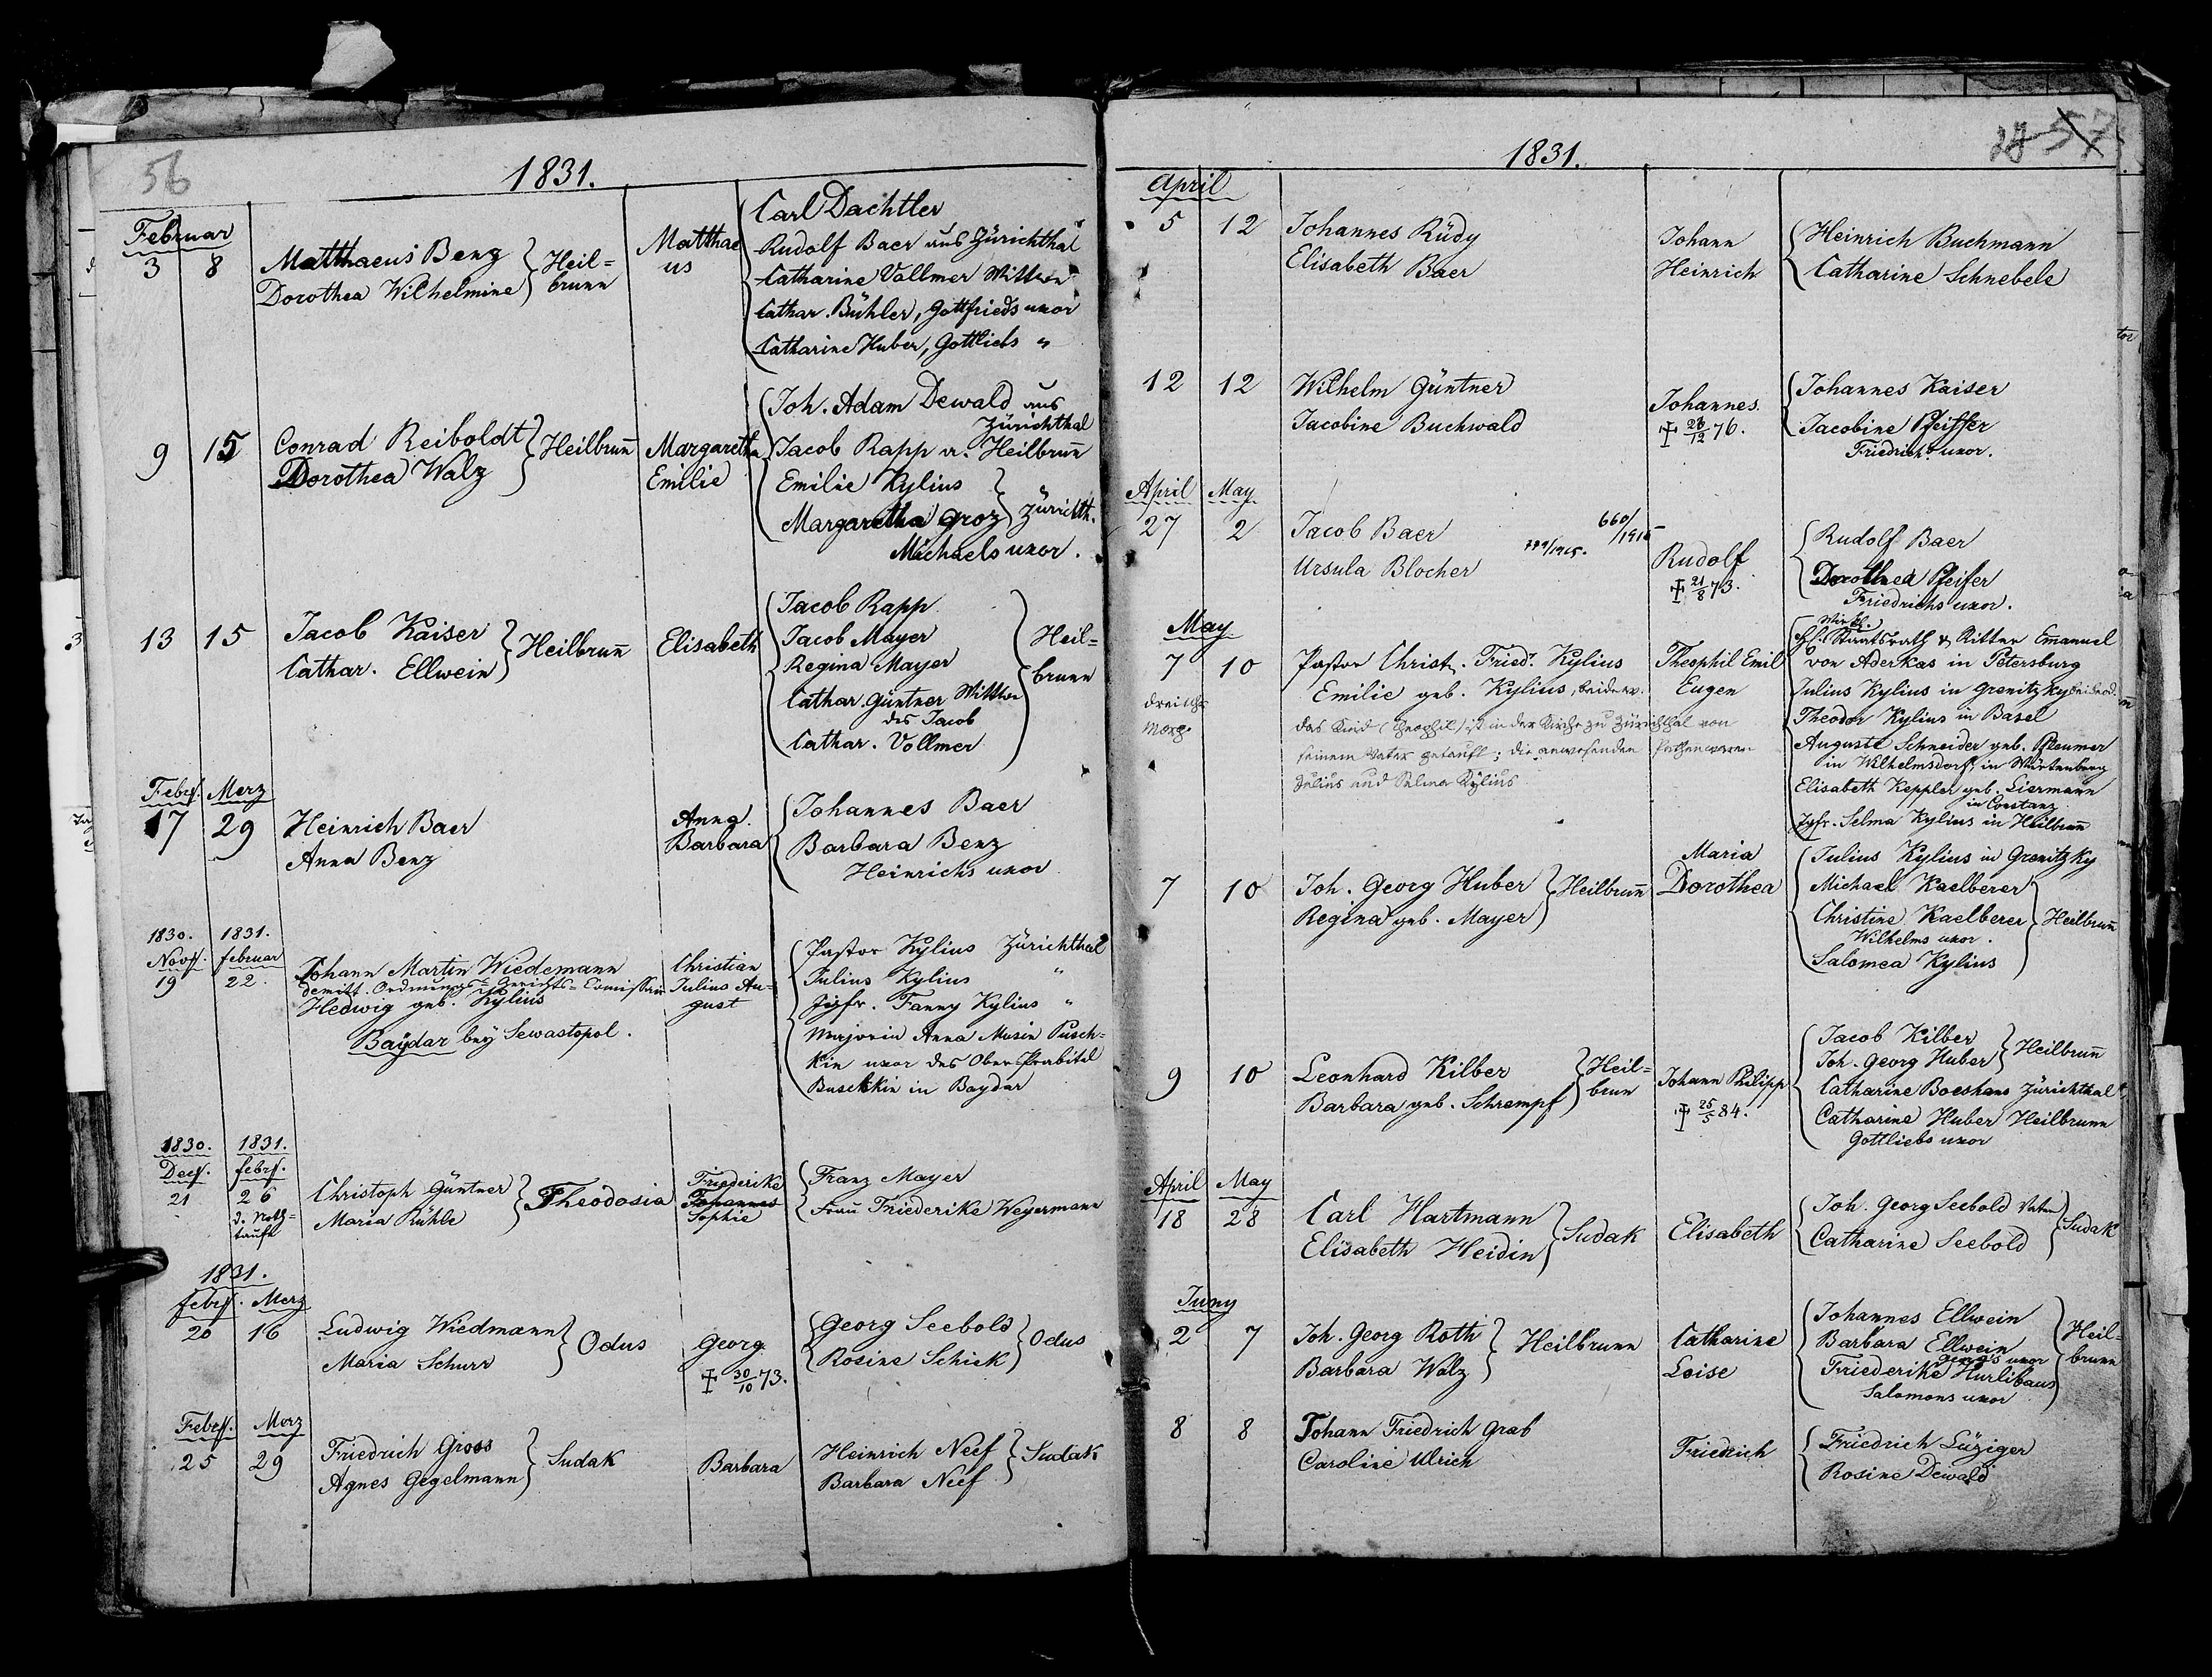 56
1831.
Februar
3 8 Matthaeus Benz
Dorothea Wilhelmine
Heil=
brunn
Matthae
us
Carl Dachtler
Rudolf Baer aus Zürichthal
Catharine Vollmer Wittwe
Cathar. Bühler, Gottfrieds uxor
Catharine Huber, Gottliebs "
9 15 Conrad Reiboldt
Dorothea Walz
Heilbrunn̄
Margaretha
Emilie
Joh. Adam Dewald aus
Zürichthal
Jacob Rapp a. Heilbrun̄
Emilie Kylius
Margaretha Groz
Zürichth.
Michaels uxor.
13 15 Jacob Kaiser
Cathar. Ellwein
Heilbrun̄
Elisabeth
Jacob Rapp
Jacob Mayer
Regina Mayer
Cathar. Güntner Wittwe
des Jacob
Cathar. Vollmer
Heil=
brunn
Febr. Merz
17 29 Heinrich Baer
Anna Benz
Anna
Barbara
Johannes Baer
Barbara Benz
Heinrichs uxor
1830. 1831.
Nov. februar
19 22. Johann Martin Wiedemann
demitt. Ordnungs=Gerichts=Comissair
Hedwig geb. Kylius
Baÿdar bey Sewastopol.
Christian
Julius Au=
gust
Pastor Kylius Zürichthal
Julius Kylius "
Jgfr. Fanny Kylius "
Majorin Anna Musin Pusch=
kin uxor des Ober
Buschkin in Baydar
1830. 1831.
Dec. febr.
21 26
d. Noth=
taufe
Christoph Güntner
Maria Kühle
Theodosia
Friederike
Johannes
Sophie
Franz Mayer
Frau Friederike Weyermann
1831.
febr. Merz
20 16 Ludwig Wiedmann
Maria Schurr
Odus
Georg
† 30/10 73.
Georg Seebold
Rosine Schick
Odus
Febr. Merz
25 29 Friedrich Gross
Agnes Gegelmann
Sudak
Barbara
Heinrich Neef
Barbara Neef
Sudak
57
1831.
April
5 12 Johannes Rüdy
Elisabeth Baer
Johann
Heinrich
Heinrich Buchmann
Catharine Schnebele
12 12 Wilhelm Güntner
Jacobine Buchwald
Johannes.
† 28/12 76.
Johannes Kaiser
Jacobine Pfeiffer
Friedrichs uxor.
April May
27 2 Jacob Baer
Ursula Blocher
660/1916
Rudolf
† 21/8 73.
Rudolf Baer
Dorothea Pfeifer
Friedrichs uxor.
May
7 10
drei Uhr
Morg.
Pastor Christ. Fried. Kylius
Emilie geb. Kylius, beiderv.
das Kind (Theophil) ist in der Kirche zu Zürichthal von
seinem Vater getauft; die anwesenden Pathen waren
Julius und Selma Kylius
Theophil Emil
Eugen
Wirkl.
Staatsrath & Ritter Emanuel
von Aderkas in Petersburg
Julius Kylius in Grenitzky
Theodor Kylius in Basel
Auguste Schneider geb. Pfleumer
in Wilhelmsdorf, in Würtenberg
Elisabeth Keppler geb. Liermann
in Constanz
Jgfr. Selma Kylius in Heilbrun̄
7 10 Joh. Georg Huber
Regina geb. Mayer
Heilbrun̄
Maria
Dorothea
Julius Kylius in Grenitzky
Michael Kaelberer
Christine Kaelberer
Wilhelms uxor.
Salomea Kylius
Heilbrun̄
9 10 Leonhard Kilber
Barbara geb. Schrempf
Heil=
brun
Johann Philipp
† 25/5 84.
Jacob Kilber
Joh. Georg Huber
Heilbrun̄
Catharine Boeshans Zürichthal
Catharine Huber Heilbrunn
Gottliebs uxor
April May
18 28 Carl Hartmann
Elisabeth Heidin
Sudak
Elisabeth
Joh. Georg Seebold Vater
Catharine Seebold
Sudak
Juny
2 7 Joh. Georg Roth
Barbara Walz
Heilbrunn
Catharine
Loise
Johannes Ellwein
Barbara Ellwein
Georg's uxor
Friederike Hurlibaus
Salomons uxor
Heil=
brunn
8 8 Johann Friedrich Grab
Caroline Ulrich
Friedrich
Friedrich Lüziger
Rosine Dewald